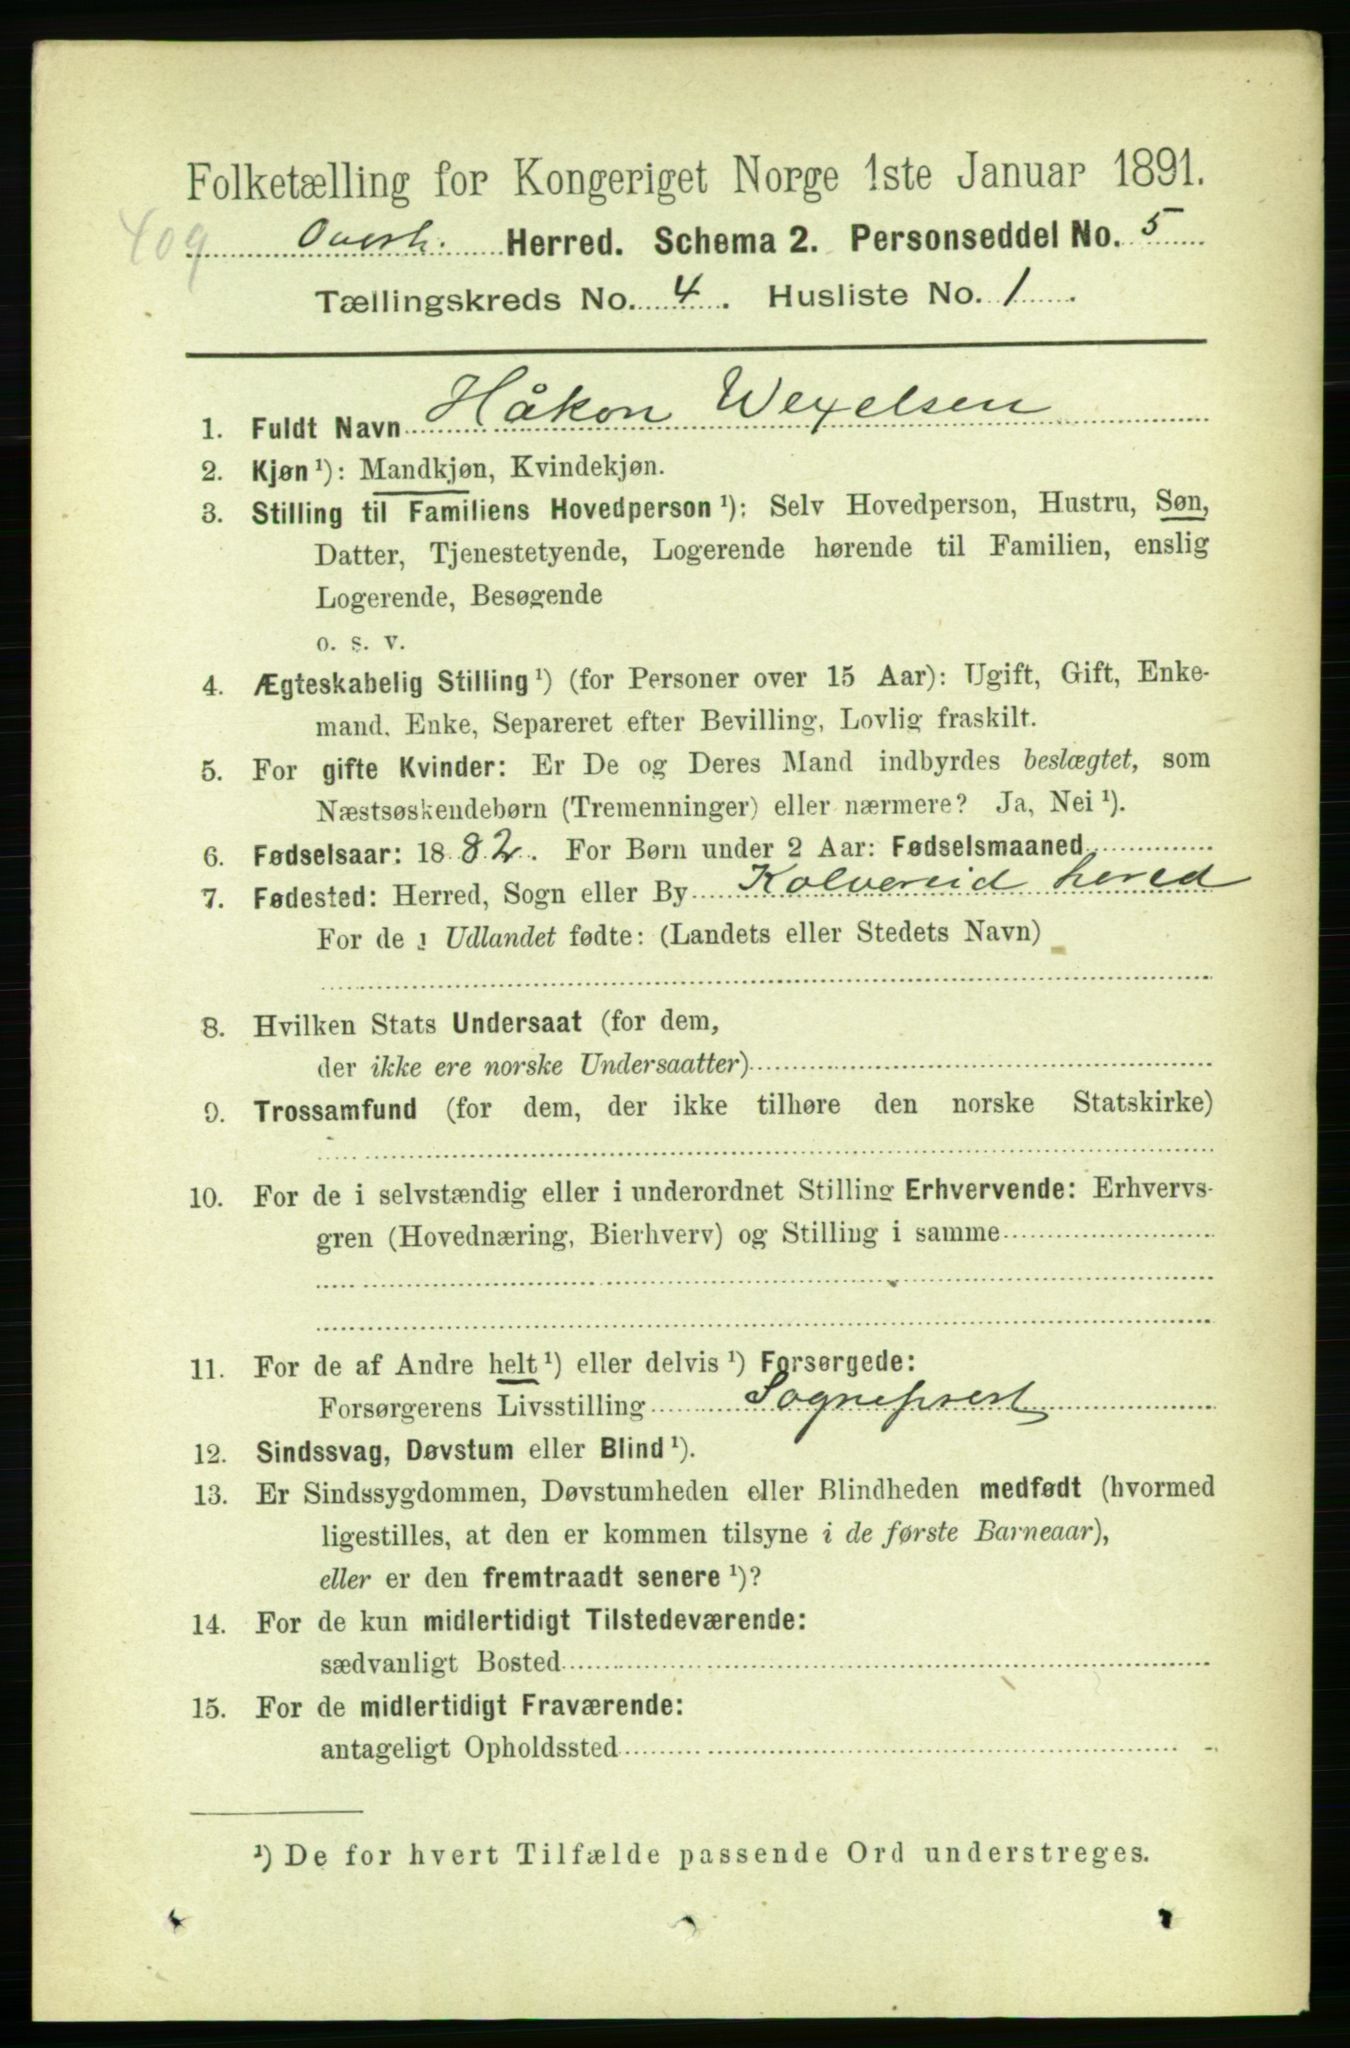 Folketælling for Kongeriget Norge 1ste Januar 1891.
409 Overh. Herred. Schema 2. Personseddel No. 5
Tællingskreds No. 4. Husliste No. 1.
1. Fuldt Navn Håkon Wexelsen
2. Kjøn ¹): Mandkjøn, Kvindekjøn.
3. Stilling til Familiens Hovedperson ¹): Selv Hovedperson, Hustru, Søn,
Datter, Tjenestetyende, Logerende hørende til Familien, enslig
Logerende, Besøgende
o. s. v.
4. Ægteskabelig Stilling ¹) (for Personer over 15 Aar): Ugift, Gift, Enke-
mand, Enke, Separeret efter Bevilling, Lovlig fraskilt.
5. For gifte Kvinder: Er De og Deres Mand indbyrdes beslægtet, som
Næstsøskendebørn (Tremenninger) eller nærmere? Ja, Nei ¹).
6. Fødselsaar: 1882. For Børn under 2 Aar: Fødselsmaaned
7. Fødested: Herred, Sogn eller By Kolvereid hered
For de i Udlandet fødte: (Landets eller Stedets Navn)
8. Hvilken Stats Undersaat (for dem,
der ikke ere norske Undersaatter)
9. Trossamfund (for dem, der ikke tilhøre den norske Statskirke)
10. For de i selvstændig eller i underordnet Stilling Erhvervende: Erhvervs-
gren (Hovednæring, Bierhverv) og Stilling i samme
11. For de af Andre helt ¹) eller delvis ¹) Forsørgede:
Forsørgerens Livsstilling Sogneprest
12. Sindssvag, Døvstum eller Blind ¹).
13. Er Sindssygdommen, Døvstumheden eller Blindheden medfødt (hvormed
ligestilles, at den er kommen tilsyne i de første Barneaar),
eller er den fremtraadt senere ¹)?
14. For de kun midlertidigt Tilstedeværende:
sædvanligt Bosted
15. For de midlertidigt Fraværende:
antageligt Opholdssted
¹) De for hvert Tilfælde passende Ord understreges.